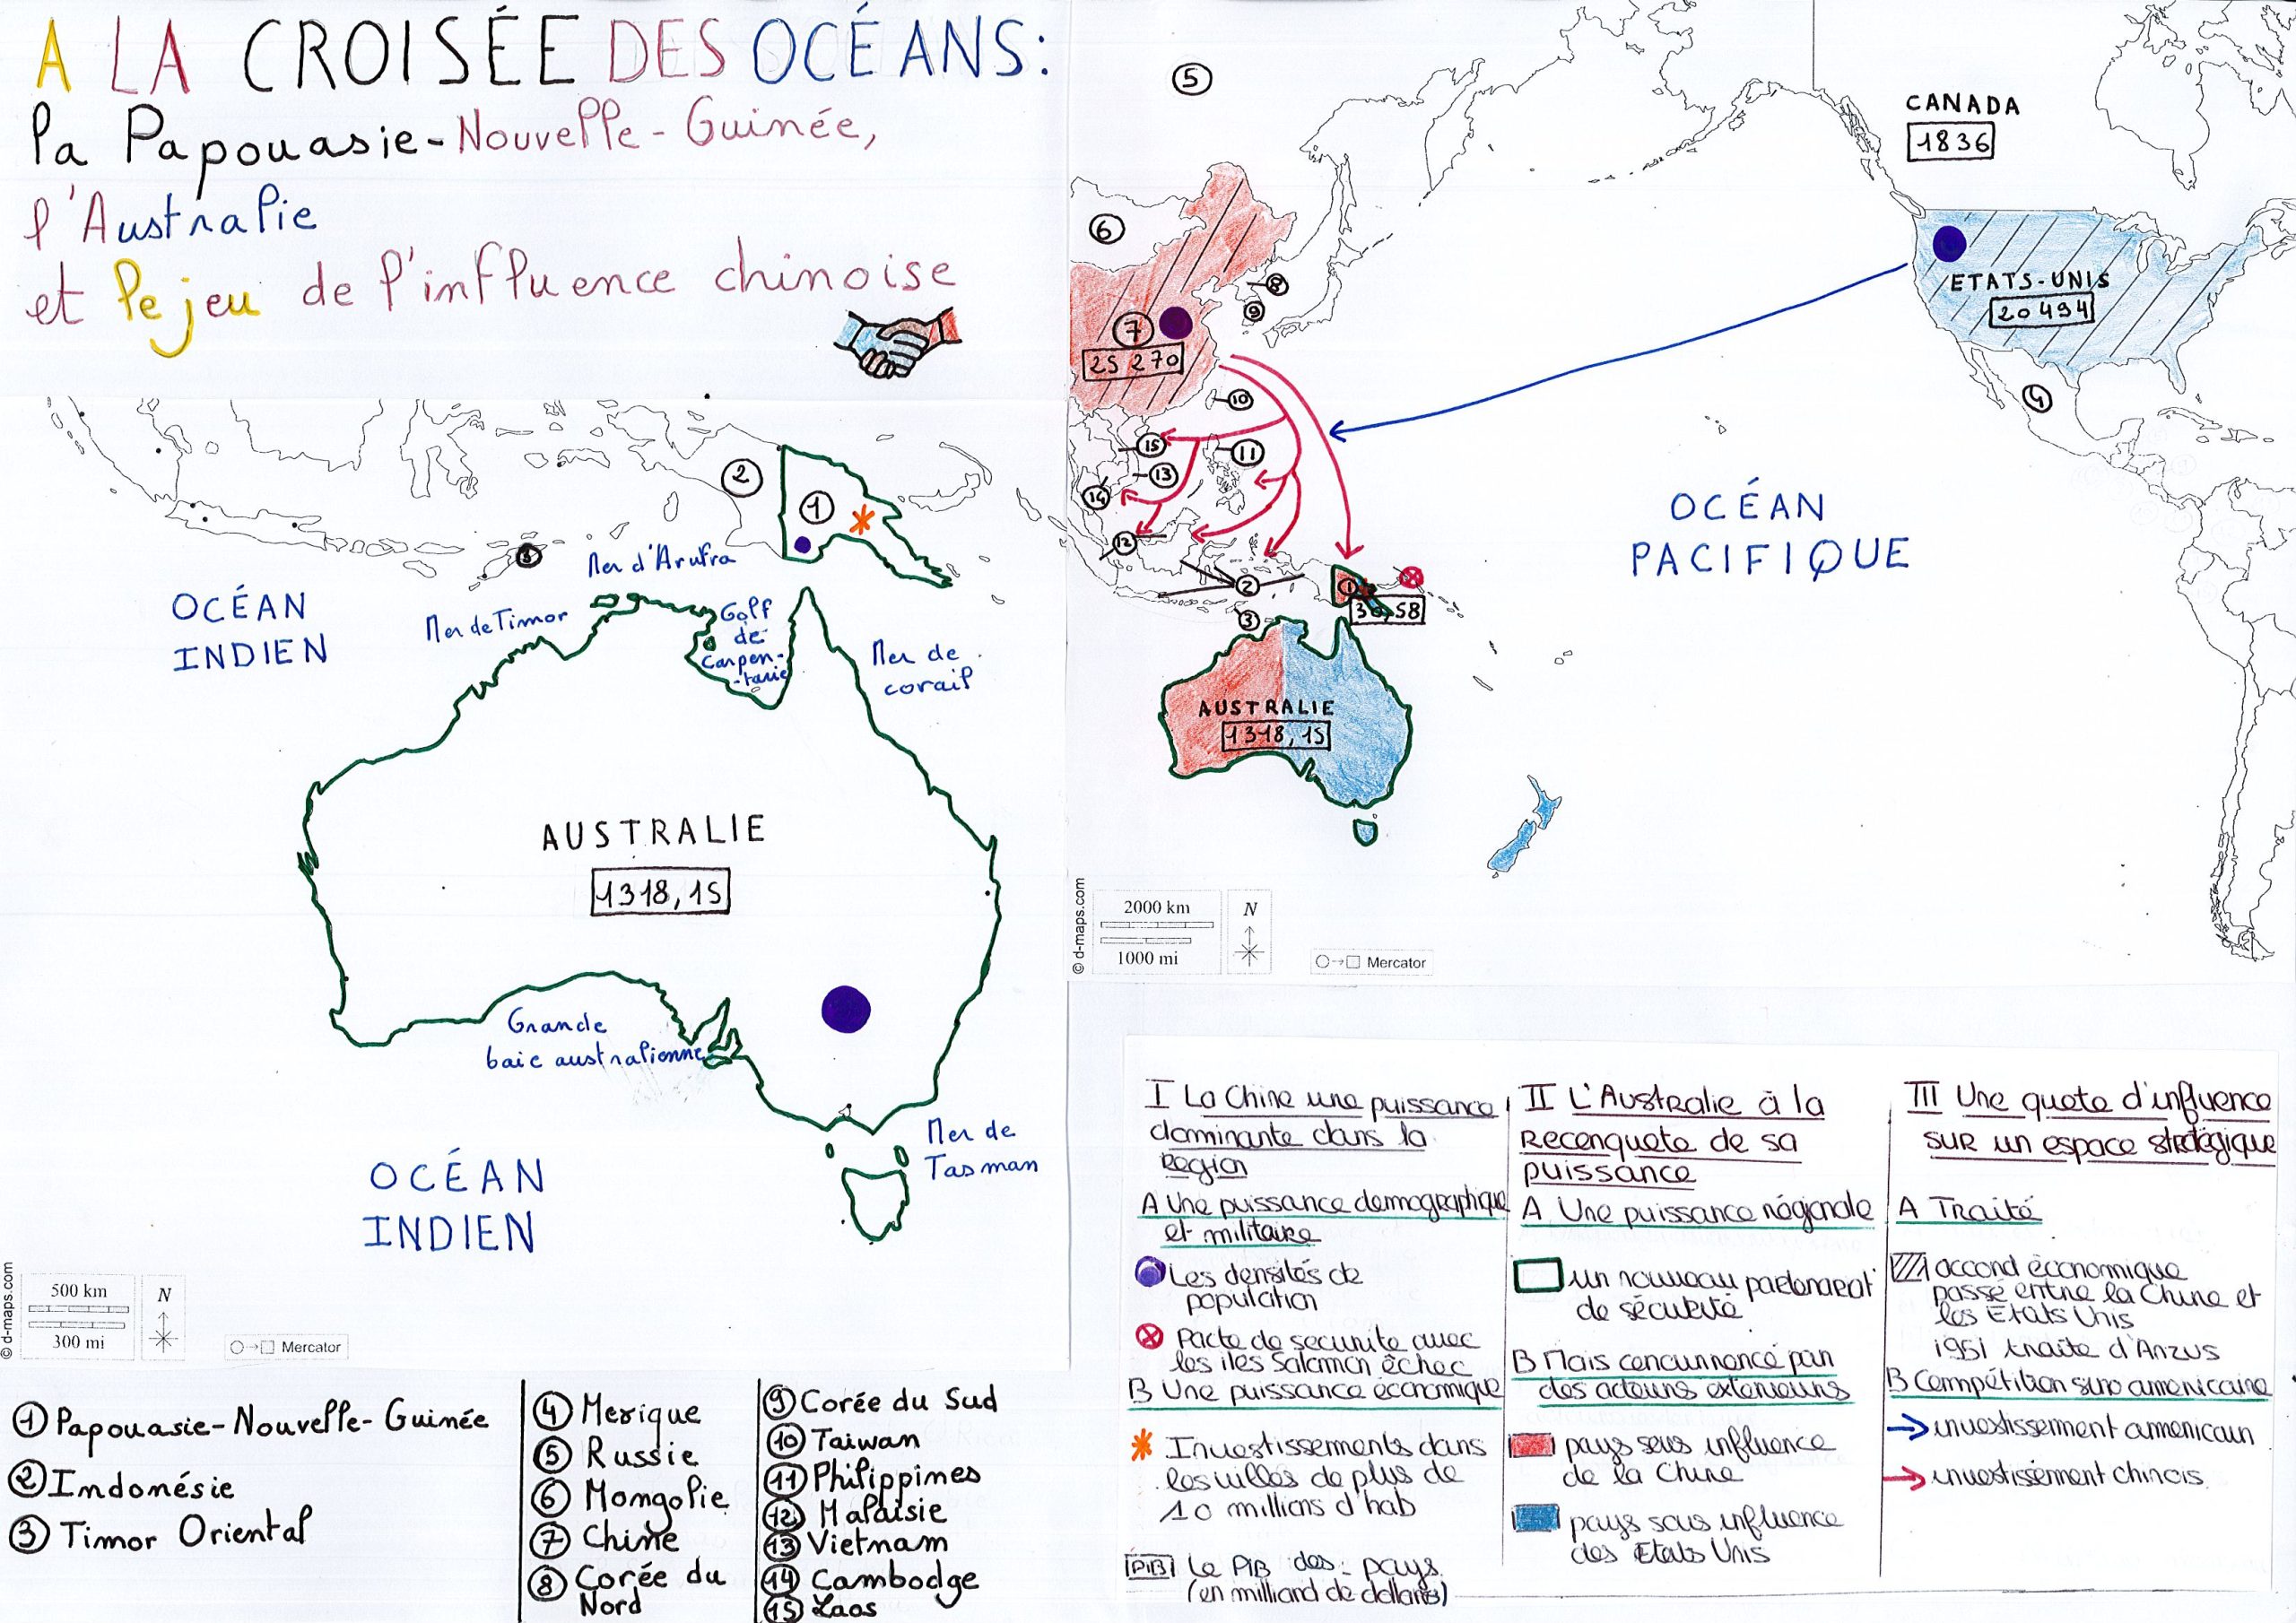 A LA CROISÉE DES OCÉANS:
la Papouasie-Nouvelle-Guinée,
l'Australie
et le jeu de l'influence chinoise
2
1
3
Mer d'Arufra
OCÉAN
INDIEN
Mer de Timor
Golf
de
Carpen-
-tarie
Mer de
corail
AUSTRALIE
1318,15
Grande
baie australienne
Mer de
Tasman
OCÉAN
INDIEN
© d-maps.com
500 km
300 mi
N
Mercator
5
CANADA
1836
6
ETATS-UNIS
20 494
8
9
7
25 270
4
10
15
11
13
14
12
OCÉAN
PACIFIQUE
2
1
30,58
3
AUSTRALIE
1318,15
© d-maps.com
2000 km
1000 mi
N
Mercator
1 Papouasie-Nouvelle-Guinée
2 Indonésie
3 Timor Oriental
4 Mexique
5 Russie
6 Mongolie
7 Chine
8 Corée du
Nord
9 Corée du Sud
10 Taiwan
11 Philippines
12 Malaisie
13 Vietnam
14 Cambodge
15 Laos
I La Chine une puissance
dominante dans la
Region
A Une puissance demographique
et militaire
Les densités de
population
Pacte de securite avec
les iles Salomon échec
B Une puissance économique
Investissements dans
les villes de plus de
10 millions d'hab
PIB Le PIB des pays
(en milliard de dollars)
II L'Australie à la
Reconquete de sa
puissance
A Une puissance régionale
un nouveau partenariat
de sécurité
B Mais concurrencé par
des acteurs exterieurs
pays sous influence
de la Chine
pays sous influence
des Etats Unis
III Une quete d'influence
sur un espace stratégique
A Traité
accord économique
passé entre la Chine et
les Etats Unis
1951 traite d'Anzus
B Compétition sino americaine
investissement americain
investissement chinois